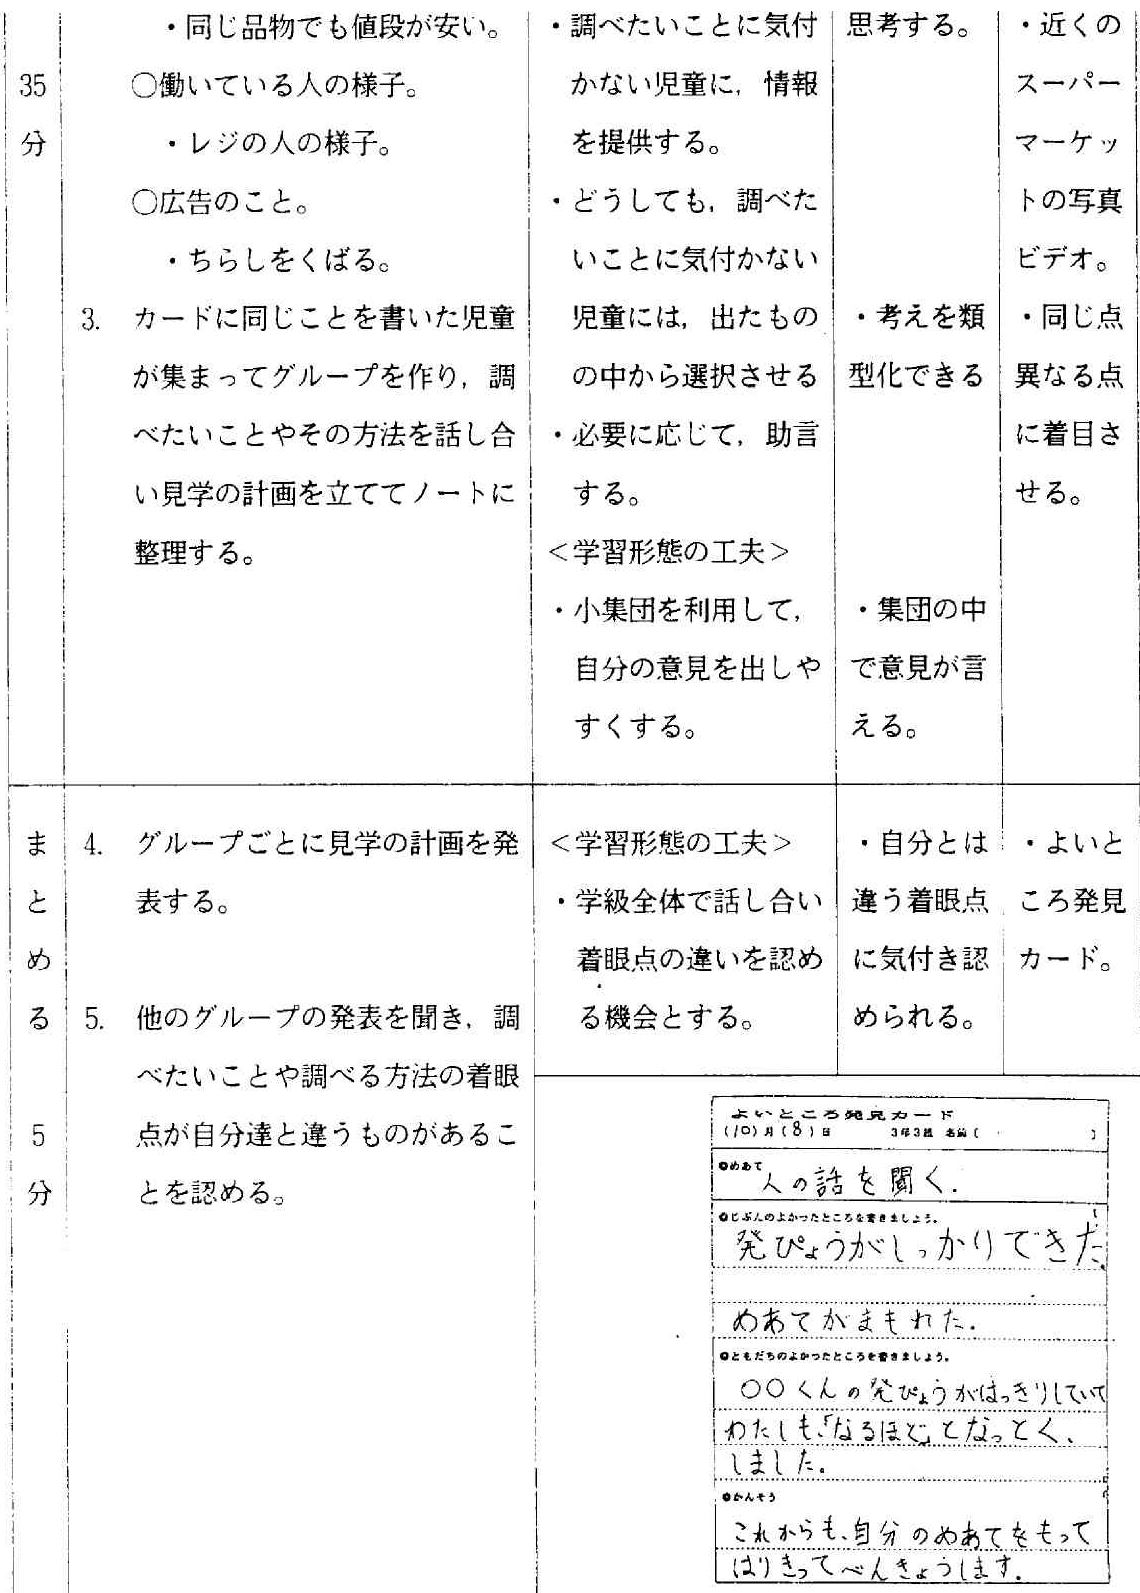 35
分
・同じ品物でも値段が安い。
○働いている人の様子。
・レジの人の様子。
○広告のこと。
・ちらしをくばる。
3. カードに同じことを書いた児童
が集まってグループを作り，調
べたいことやその方法を話し合
い見学の計画を立ててノートに
整理する。
・調べたいことに気付
かない児童に，情報
を提供する。
・どうしても，調べた
いことに気付かない
児童には，出たもの
の中から選択させる
・必要に応じて，助言
する。
＜学習形態の工夫＞
・小集団を利用して，
自分の意見を出しや
すくする。
思考する。
・考えを類
型化できる
・集団の中
で意見が言
える。
・近くの
スーパー
マーケッ
トの写真
ビデオ。
・同じ点
異なる点
に着目さ
せる。
ま
と
め
る
5
分
4. グループごとに見学の計画を発
表する。
5. 他のグループの発表を聞き，調
べたいことや調べる方法の着眼
点が自分達と違うものがあるこ
とを認める。
＜学習形態の工夫＞
・学級全体で話し合い
着眼点の違いを認め
る機会とする。
・自分とは
違う着眼点
に気付き認
められる。
・よいと
ころ発見
カード。
よいところ発見カード
(10)月(8)日 3年3組 名前( )
◎めあて
人の話を聞く.
◎じぶんのよかったところを書きましょう。
発ぴょうがしっかりできた.
めあてがまもれた.
◎ともだちのよかったところを書きましょう。
○○くんの発ぴょうがはっきりしていて
わたしも、「なるほど」となっとく、
しました.
◎かんそう
これからも、自分のめあてをもって
はりきってべんきょうします.